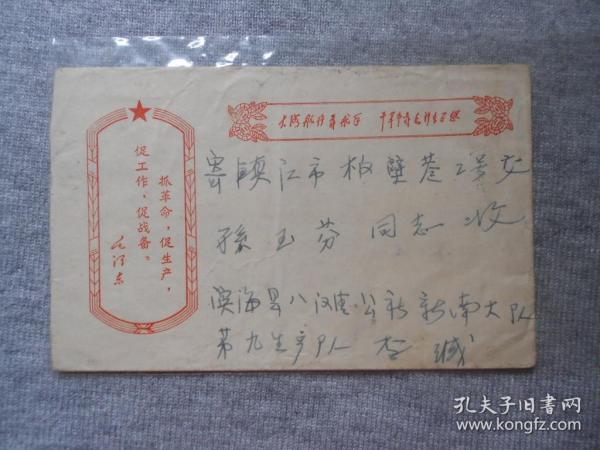 大海航行靠舵手 干革命靠毛泽东思想
抓革命，促生产，
促工作，促战备。
毛泽东
寄镇江市板壁巷2号交
孙玉芬 同志 收
滨海县八滩公社新南大队
第九生产队 李 缄
孔夫子旧书网
www.kongfz.com